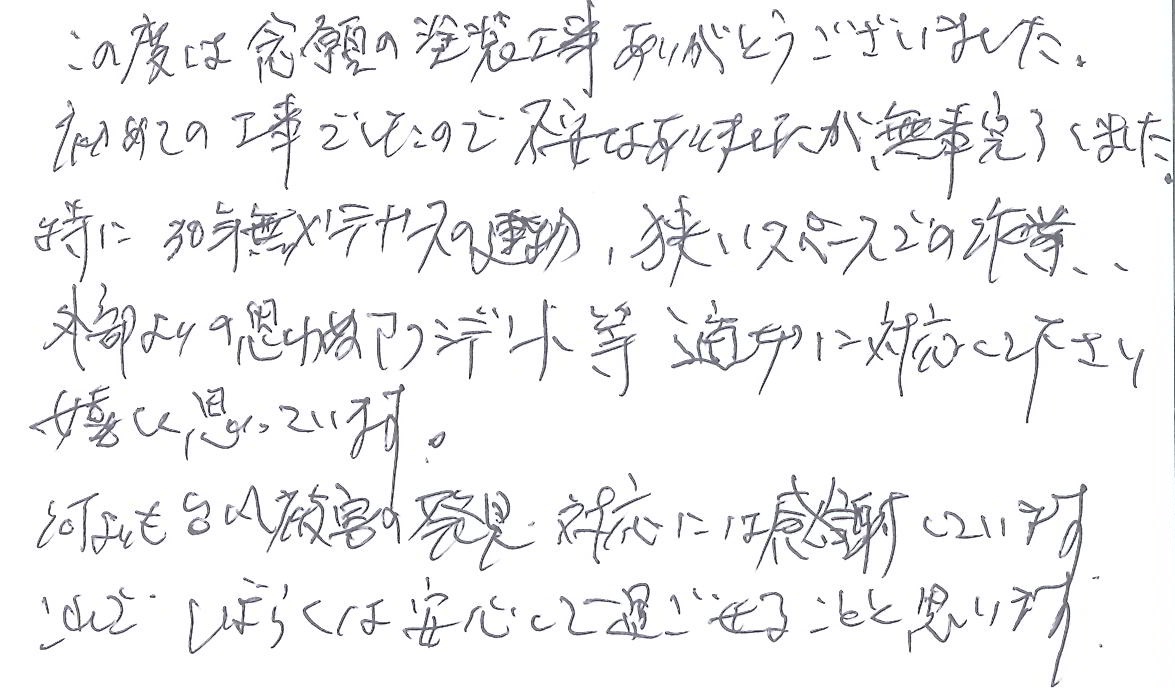 この度は念願の塗装工事ありがとうございました。
初めての工事でしたので不安はありましたが、無事完了しました。
特に30年無メンテナンスの運動、狭いスペースでの作業、、
外部よりの思わぬアクシデント等適切に対応して下さり
嬉しく思っています。
何よりも白アリ被害の発見・対応には感謝しています
これで しばらくは安心して過ごせることと思います。